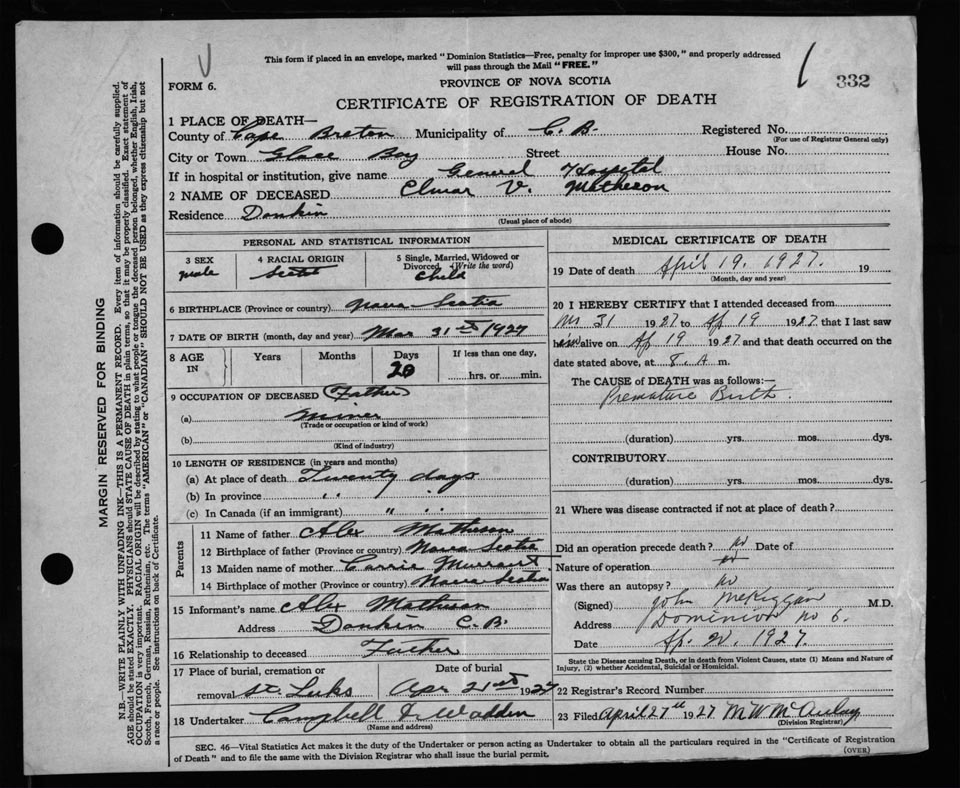 This form if placed in an envelope, marked "Dominion Statistics—Free, penalty for improper use $300," and properly addressed
will pass through the Mail "FREE."
332
FORM 6.
PROVINCE OF NOVA SCOTIA
CERTIFICATE OF REGISTRATION OF DEATH
1 PLACE OF DEATH—
County of Cape Breton Municipality of C. B. Registered No.
(For use of Registrar General only)
City or Town Glace Bay Street House No.
If in hospital or institution, give name General Hospital
2 NAME OF DECEASED Elmar V. Matheson
Residence Donkin
(Usual place of abode)
PERSONAL AND STATISTICAL INFORMATION
3 SEX male
4 RACIAL ORIGIN
5 Single, Married, Widowed or Divorced (Write the word) Child
6 BIRTHPLACE (Province or country) Nova Scotia
7 DATE OF BIRTH (month, day and year) Mar 31st 1927
8 AGE IN Years Months Days 20 If less than one day, hrs. or min.
9 OCCUPATION OF DECEASED (Father)
(a) Miner
(Trade or occupation or kind of work)
(b)
(Kind of industry)
10 LENGTH OF RESIDENCE (in years and months)
(a) At place of death Twenty days
(b) In province " "
(c) In Canada (if an immigrant) " "
Parents
11 Name of father Alex Matheson
12 Birthplace of father (Province or country) Nova Scotia
13 Maiden name of mother Carrie Murrant
14 Birthplace of mother (Province or country) Nova Scotia
15 Informant's name Alex Matheson
Address Donkin C.B.
16 Relationship to deceased Father
17 Place of burial, cremation or removal St. Luks Date of burial Apr 21st 1927
18 Undertaker Campbell & Wadden
(Name and address)
MEDICAL CERTIFICATE OF DEATH
19 Date of death April 19. 1927. 19
(Month, day and year)
20 I HEREBY CERTIFY that I attended deceased from
Mr 31 1927 to Ap 19 1927, that I last saw
alive on Ap 19 1927 and that death occurred on the
date stated above, at 8. A. m.
The CAUSE of DEATH was as follows:—
Premature Birth.
(duration) yrs. mos. dys.
CONTRIBUTORY
(duration) yrs. mos. dys.
21 Where was disease contracted if not at place of death?
Did an operation precede death? no Date of
Nature of operation no
Was there an autopsy? no
(Signed) John McKiggan M.D.
Address Dominion no 6.
Date Ap. 20. 1927.
State the Disease causing Death, or in death from Violent Causes, state (1) Means and Nature of
Injury, (2) whether Accidental, Suicidal or Homicidal.
22 Registrar's Record Number
23 Filed April 27th 1927 M W McAulay
(Division Registrar)
SEC. 46—Vital Statistics Act makes it the duty of the Undertaker or person acting as Undertaker to obtain all the particulars required in the "Certificate of Registration
of Death" and to file the same with the Division Registrar who shall issue the burial permit.
(OVER)
MARGIN RESERVED FOR BINDING
N.B.—WRITE PLAINLY WITH UNFADING INK—THIS IS A PERMANENT RECORD. Every item of information should be carefully supplied.
AGE should be stated EXACTLY. PHYSICIANS should STATE CAUSE OF DEATH in plain terms, so that it may be properly classified. Exact statement of
OCCUPATION is very important. RACIAL ORIGIN will be described by stating to what people or tongue the deceased person belonged, whether English, Irish,
Scotch, French, German, Russian, Ruthenian, etc. The terms "AMERICAN" or "CANADIAN" SHOULD NOT BE USED as they express citizenship but not
a race or people. See instructions on back of Certificate.